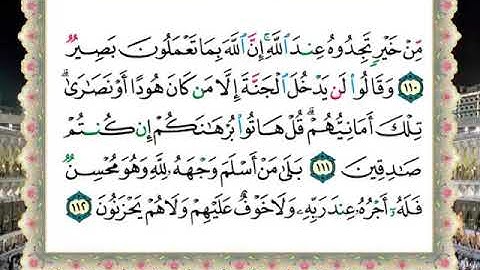 مِّنۡ خَيۡرٖ تَجِدُوهُ عِندَ ٱللَّهِۗ إِنَّ ٱللَّهَ بِمَا تَعۡمَلُونَ بَصِيرٞ
١١٠ وَقَالُواْ لَن يَدۡخُلَ ٱلۡجَنَّةَ إِلَّا مَن كَانَ هُودًا أَوۡ نَصَٰرَىٰۗ
تِلۡكَ أَمَانِيُّهُمۡۗ قُلۡ هَاتُواْ بُرۡهَٰنَكُمۡ إِن كُنتُمۡ
صَٰدِقِينَ ١١١ بَلَىٰ مَنۡ أَسۡلَمَ وَجۡهَهُۥ لِلَّهِ وَهُوَ مُحۡسِنٞ
فَلَهُۥٓ أَجۡرُهُۥ عِندَ رَبِّهِۦ وَلَا خَوۡفٌ عَلَيۡهِمۡ وَلَا هُمۡ يَحۡزَنُونَ ١١٢